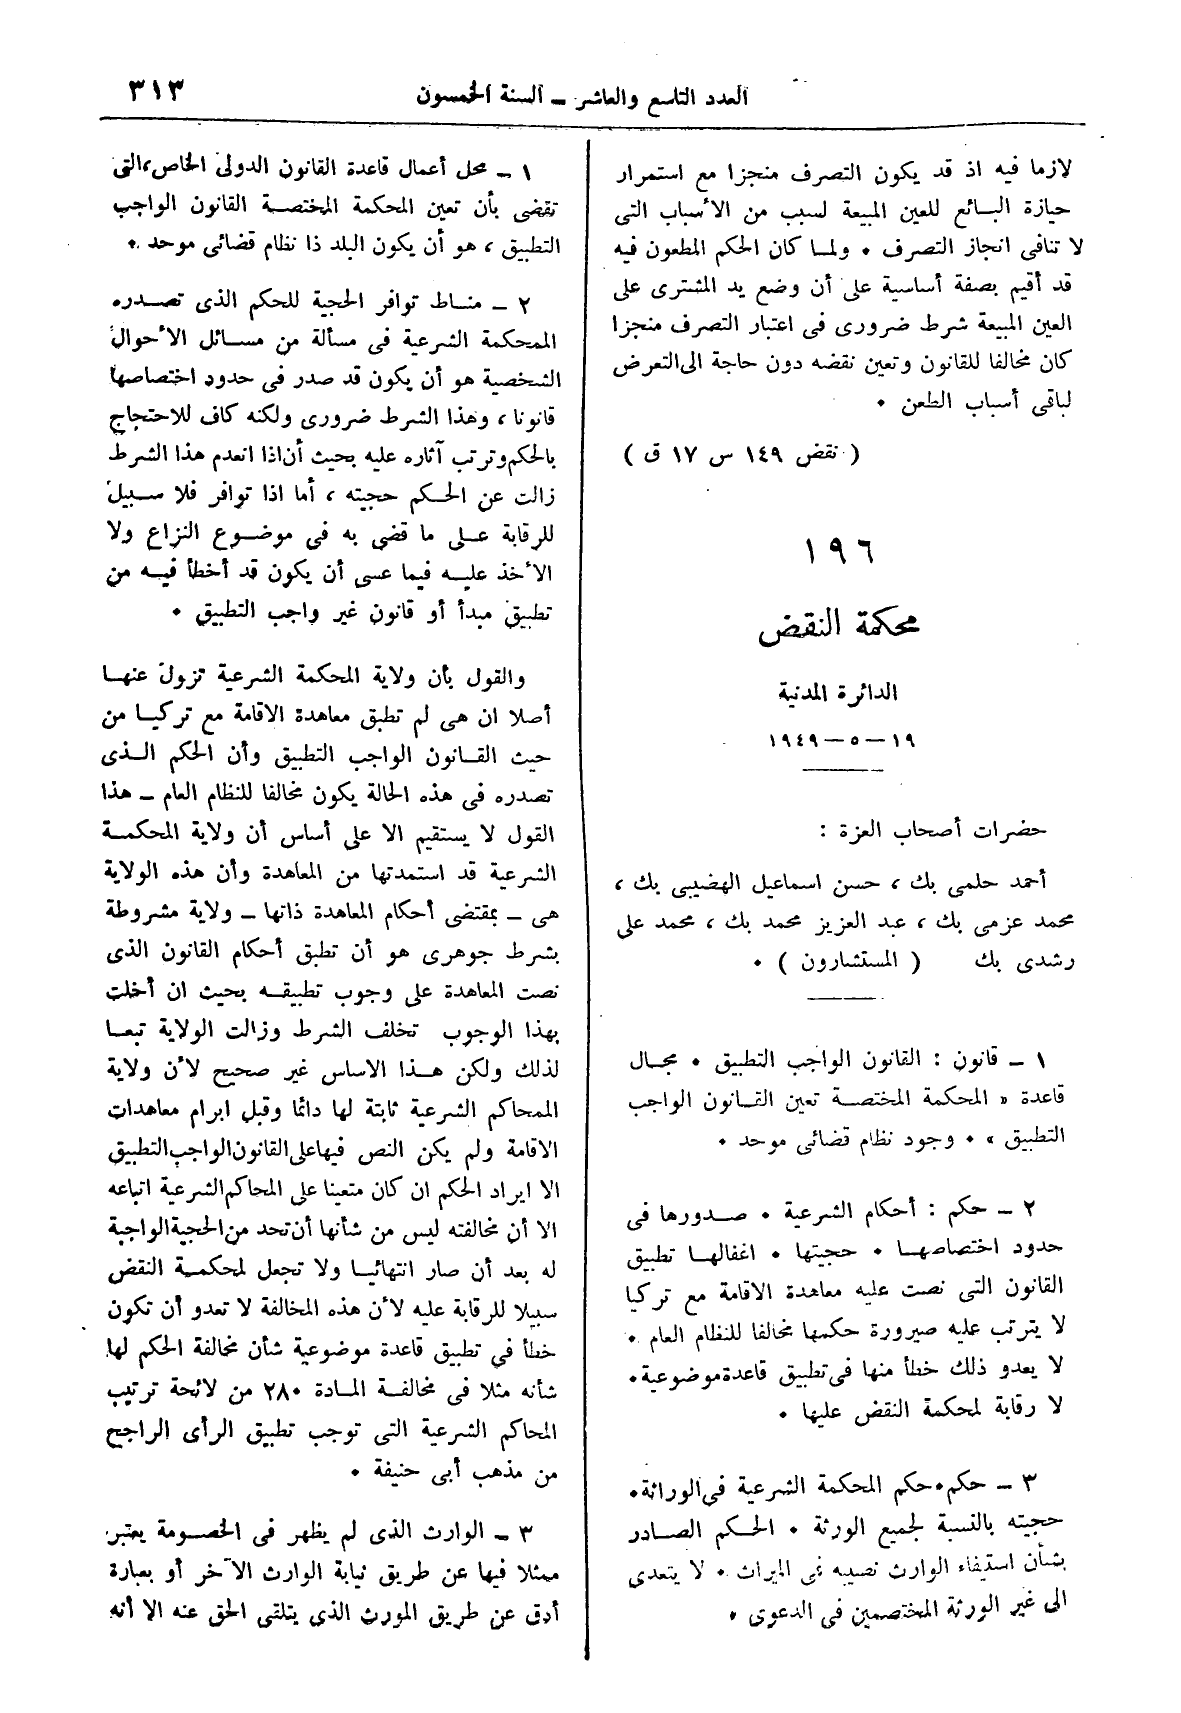 العدد التاسع والعاشر ــ السنة الخمسون
٣١٣
لازما فيه اذ قد يكون التصرف منجزا مع استمرار
حيازة البائع للعين المبيعة لسبب من الأسباب التى
لا تنافى انجاز التصرف ٠ ولمـا كان الحكم المطعون فيه
قد أقيم بصفة أساسية على أن وضع يد المشترى على
العين المبيعة شرط ضرورى فى اعتبار التصرف منجزا
كان مخالفا للقانون وتعين نقضه دون حاجة الى التعرض
لباقى أسباب الطعن ٠
( نقض ١٤٩ س ١٧ ق )
١٩٦
محكمة النقض
الدائرة المدنية
١٩ ــ ٥ ــ ١٩٤٩
حضرات أصحاب العزة :
أحمد حلمى بك ، حسن اسماعيل الهضيبى بك ،
محمد عزمى بك ، عبد العزيز محمد بك ، محمد على
رشدى بك ( المستشارون ) ٠
١ ــ قانون : القانون الواجب التطبيق ٠ مجال
قاعدة « المحكمة المختصـة تعين القـانون الواجب
التطبيق » ٠ وجود نظام قضائى موحد ٠
٢ ــ حكم : أحكام الشرعية ٠ صـدورها فى
حدود اختصاصهـا ٠ حجيتها ٠ اغفالهـا تطبيق
القانون التى نصت عليه معاهدة الاقامة مع تركيا
لا يترتب عليه صيرورة حكمها مخالفا للنظام العام ٠
لا يعدو ذلك خطأ منها فى تطبيق قاعدة موضوعية ٠
لا رقابة لمحكمة النقض عليها ٠
٣ ــ حكم ٠ حكم المحكمة الشرعية فى الوراثة ٠
حجيته بالنسبة لجميع الورثة ٠ الحـكم الصـادر
بشأن استيفاء الوارث نصيبه فى الميراث ٠ لا يتعدى
الى غير الورثة المختصمين فى الدعوى ٠
١ ــ محل أعمال قاعدة القانون الدولى الخاص ، التى
تقضى بأن تعين المحكمة المختصـة القانون الواجب
التطبيق ، هو أن يكون البلد ذا نظام قضائى موحد ٠
٢ ــ منـاط توافر الحجية للحكم الذى تصـدره
المحكمة الشرعية فى مسألة من مسـائل الأحوال
الشخصية هو أن يكون قد صدر فى حدود اختصاصها
قانونا ، وهذا الشرط ضرورى ولكنه كاف للاحتجاج
بالحكم وترتب آثاره عليه بحيث أن اذا انعدم هذا الشرط
زالت عن الحـكم حجيته ، أما اذا توافر فلا سـبيل
للرقابة عـلى ما قضى به فى موضـوع النزاع ولا
الأخذ عليـه فيما عسى أن يكون قد أخطأ فيـه من
تطبيق مبدأ أو قانون غير واجب التطبيق ٠
والقول بأن ولاية المحكمة الشرعية تزول عنهـا
أصلا ان هى لم تطبق معاهدة الاقامة مع تركيـا من
حيث القـانون الواجب التطبيق وأن الحكم الـذى
تصدره فى هذه الحالة يكون مخالفا للنظام العام ــ هذا
القول لا يستقيم الا على أساس أن ولاية المحكمـة
الشرعية قد استمدتها من المعاهدة وأن هذه الولاية
هى ــ بمقتضى أحكام المعاهدة ذاتها ــ ولاية مشروطة
بشرط جوهرى هو أن تطبق أحكام القانون الذى
نصت المعاهدة على وجوب تطبيقـه بحيث ان أخلت
بهذا الوجوب تخلف الشرط وزالت الولاية تبعـا
لذلك ولكن هـذا الاساس غير صحيح لأن ولاية
المحاكم الشرعية ثابتة لها دائما وقبل ابرام معاهدات
الاقامة ولم يكن النص فيها على القانون الواجب التطبيق
الا ايراد الحكم ان كان متعينا على المحاكم الشرعية اتباعه
الا أن مخالفته ليس من شأنها أن تحد من الحجية الواجبة
له بعد أن صار انتهائيـا ولا تجعل لمحكمـة النقض
سبيلا للرقابة عليه لأن هذه المخالفة لا تعدو أن تكون
خطأ فى تطبيق قاعدة موضوعية شأن مخالفة الحكم لها
شأنه مثلا فى مخالفـة المـادة ٢٨٠ من لائحة ترتيب
المحاكم الشرعية التى توجب تطبيق الرأى الراجح
من مذهب أبى حنيفة ٠
٣ ــ الوارث الذى لم يظهر فى الخصـومة يعتبر
ممثلا فيها عن طريق نيابة الوارث الآخر أو بعبارة
أدق عن طريق المورث الذى يتلقى الحق عنه الا أنه